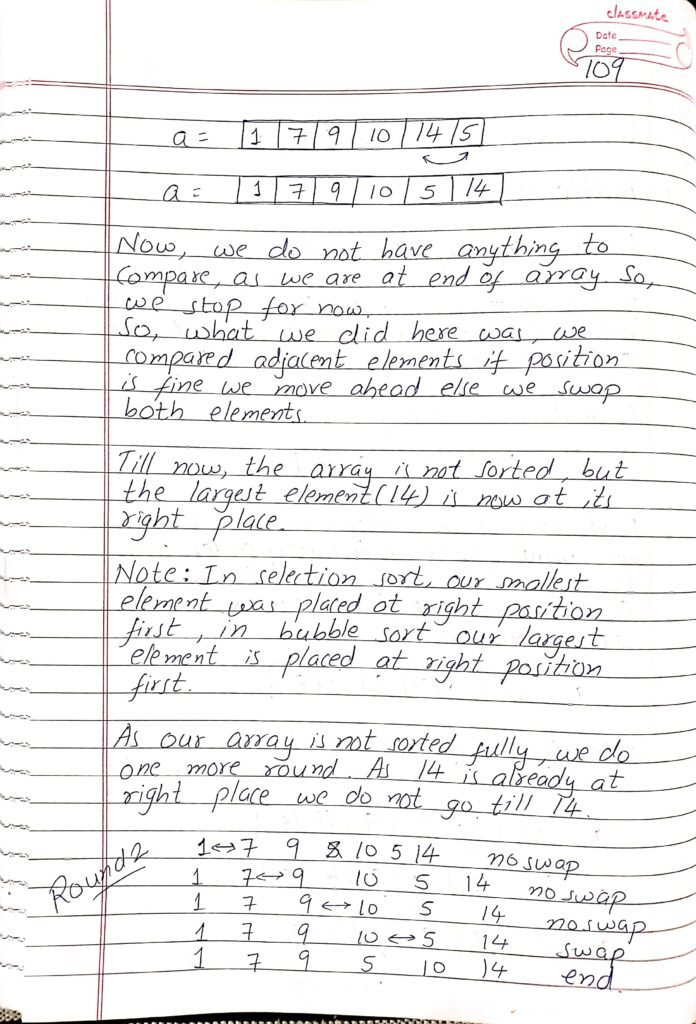 classmate
Date
Page
109
a = 1 7 9 10 14 5
a = 1 7 9 10 5 14
Now, we do not have anything to
compare, as we are at end of array. So,
we stop for now.
So, what we did here was, we
compared adjacent elements if position
is fine we move ahead else we swap
both elements.
Till now, the array is not sorted, but
the largest element (14) is now at its
right place.
Note: In selection sort, our smallest
element was placed at right position
first, in bubble sort our largest
element is placed at right position
first.
As our array is not sorted fully, we do
one more round. As 14 is already at
right place we do not go till 14.
Round 2
1 ↔ 7 9 10 5 14 no swap
1 7 ↔ 9 10 5 14 no swap
1 7 9 ↔ 10 5 14 no swap
1 7 9 10 ↔ 5 14 swap
1 7 9 5 10 14 end